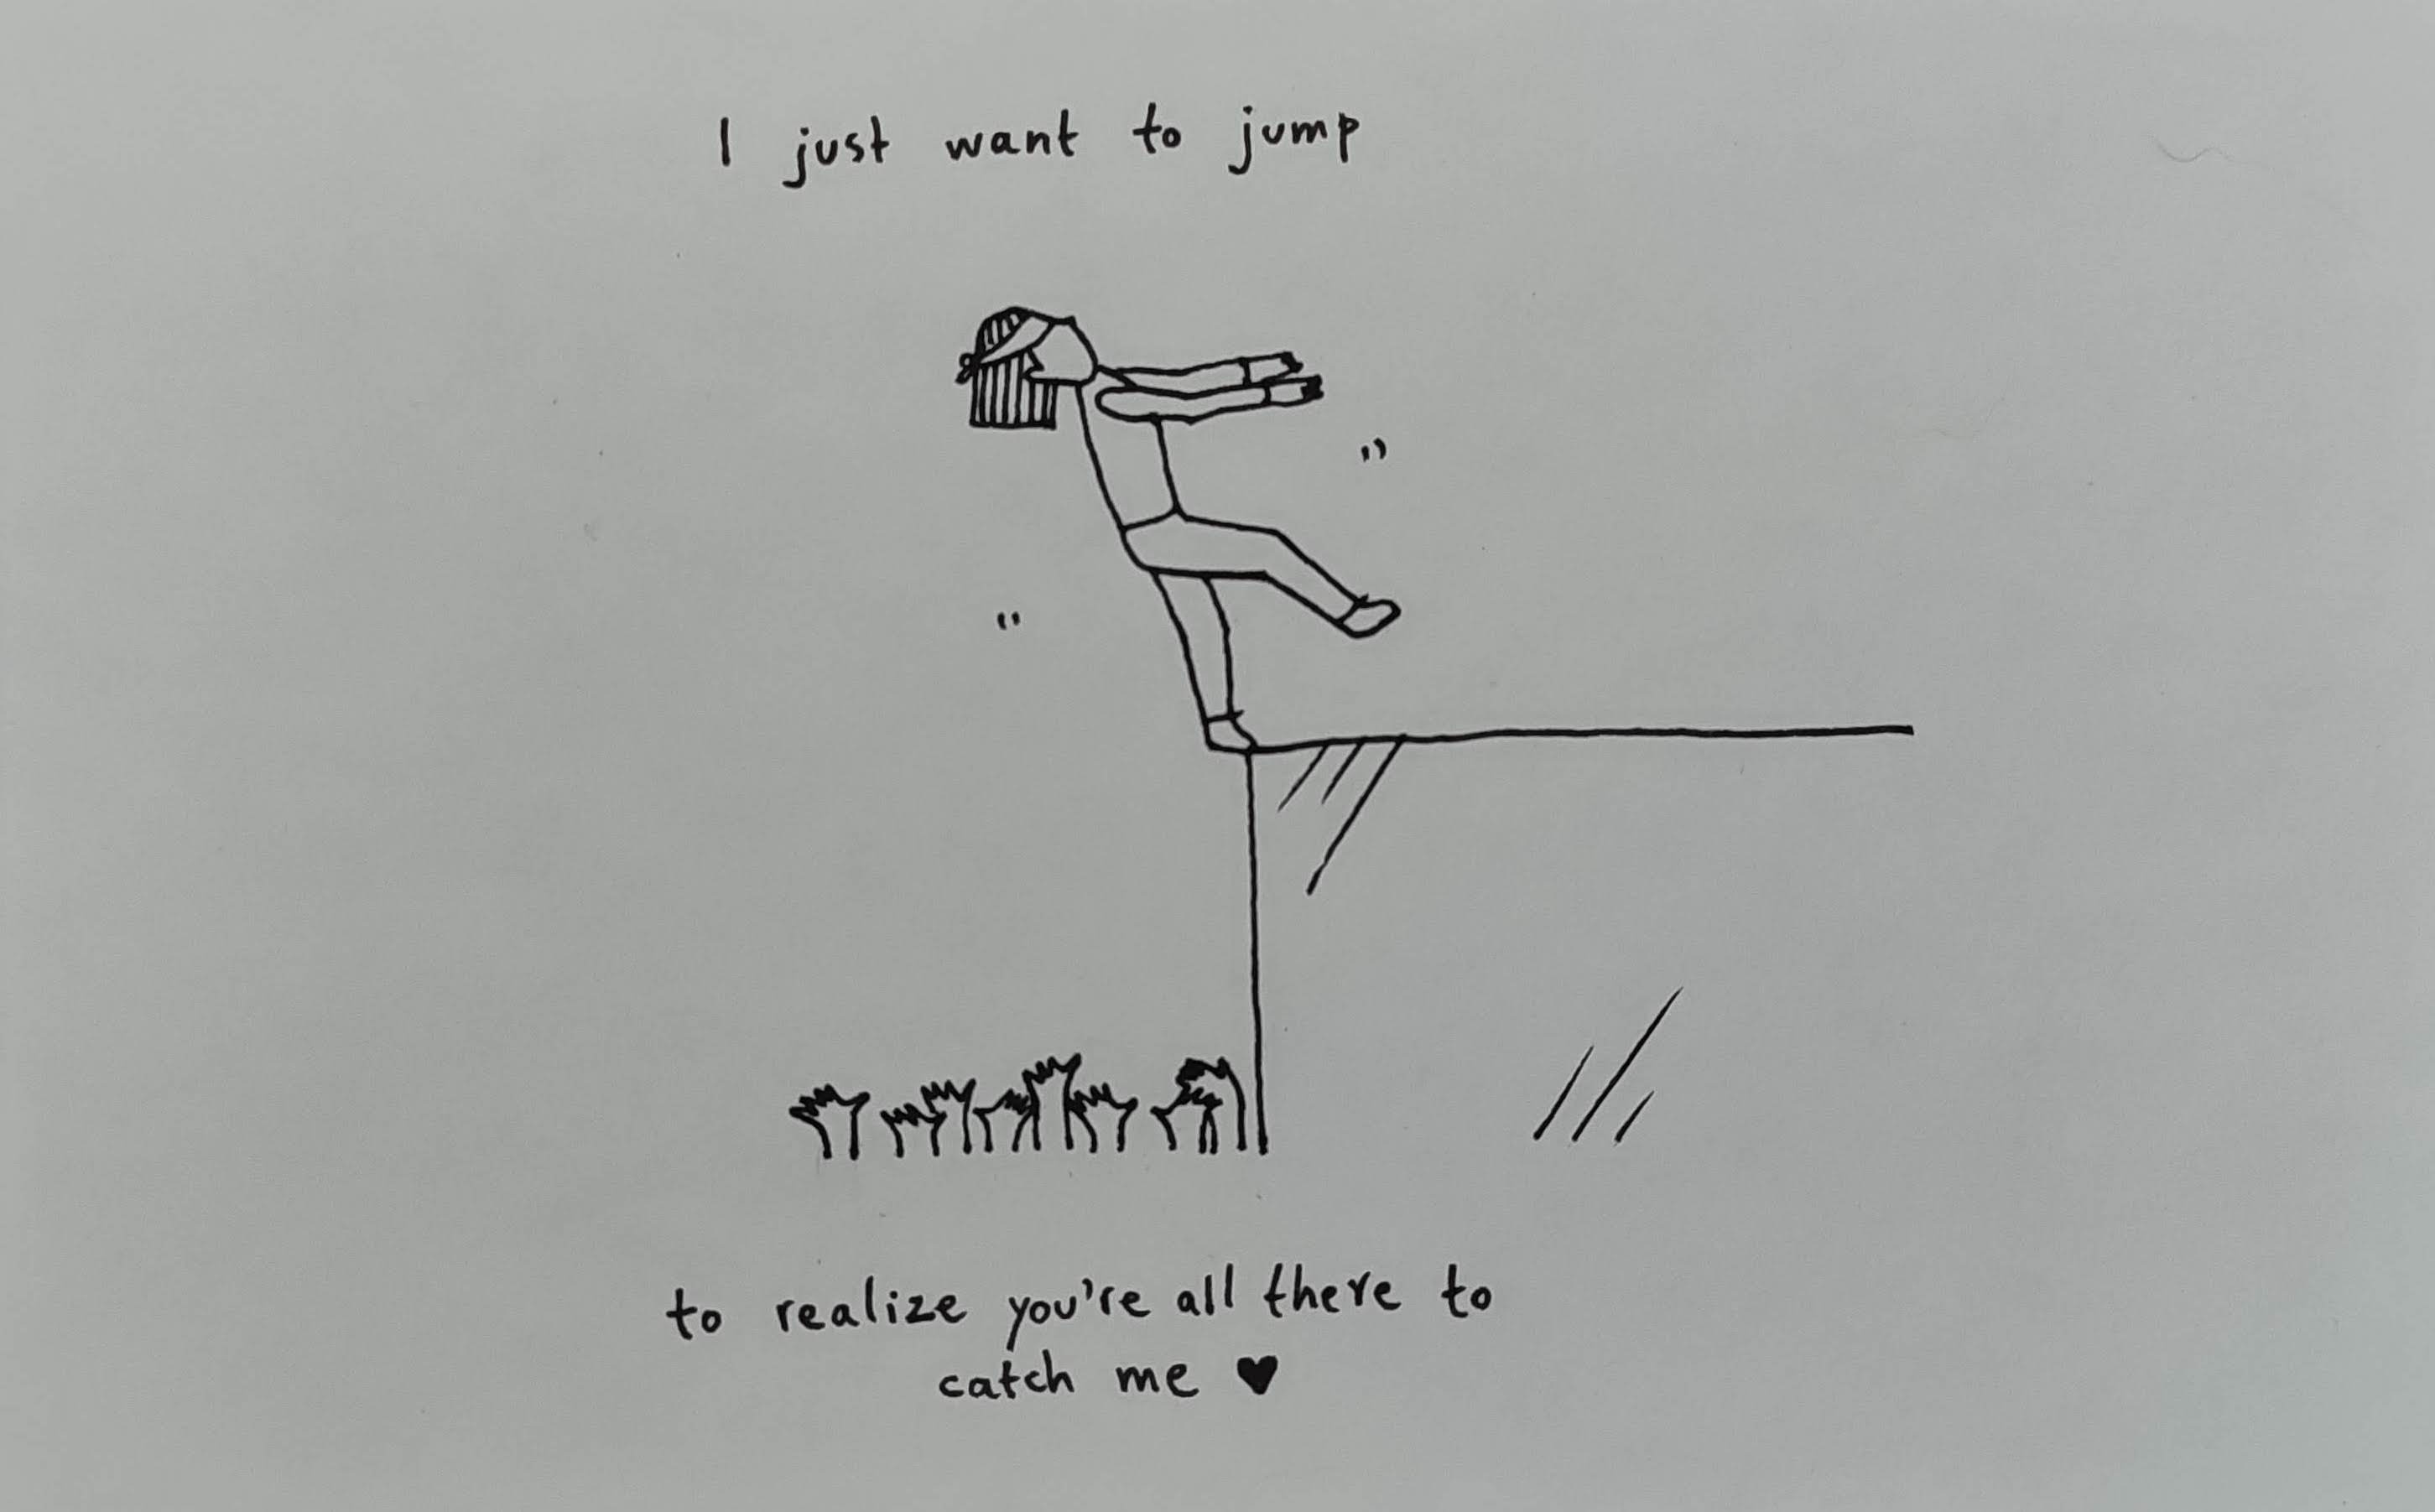 I just want to jump
to realize you're all there to
catch me ♥